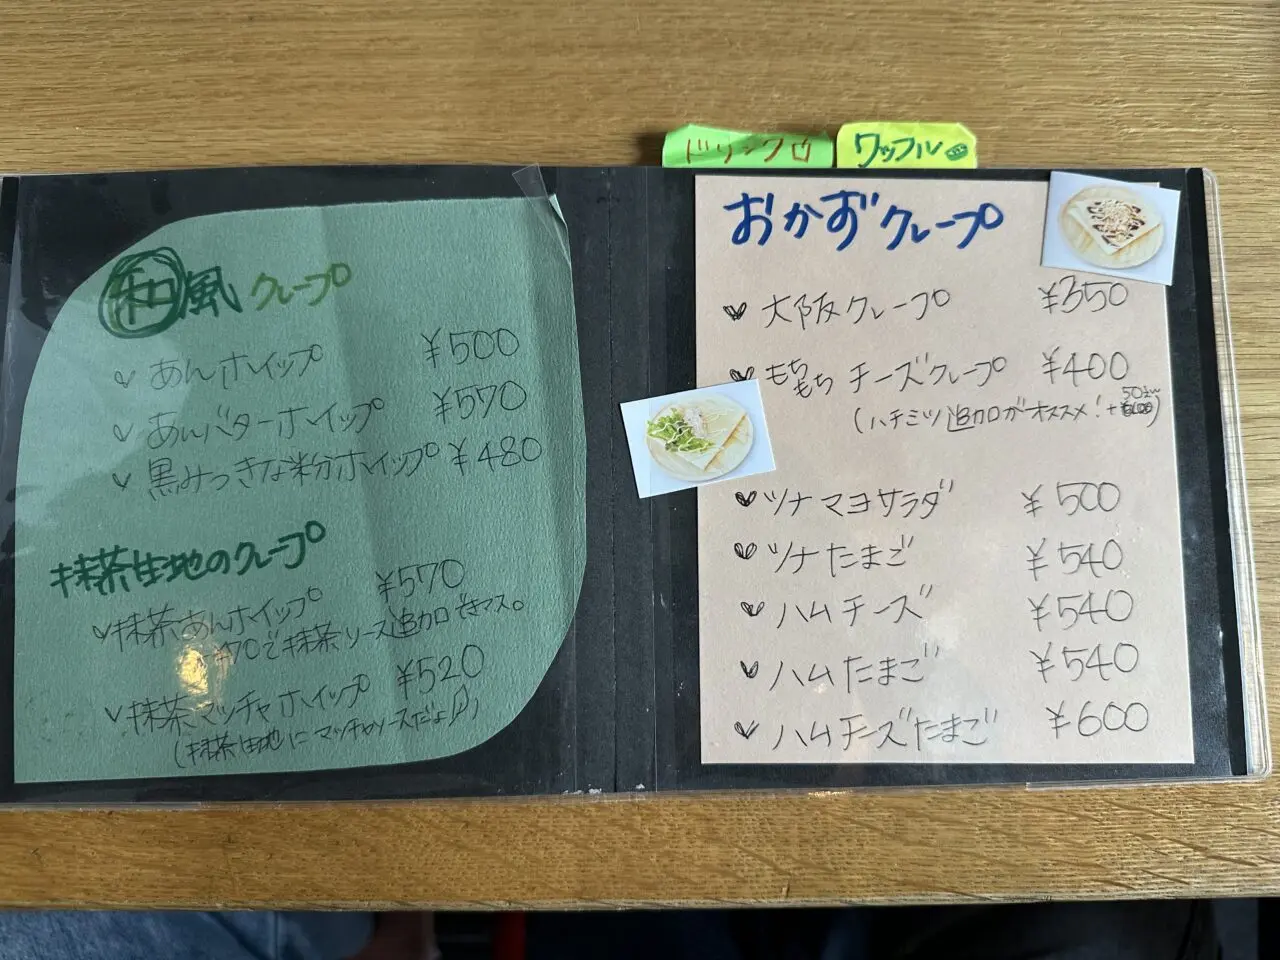 ドリンク
ワッフル
和風クレープ
あんホイップ ¥500
あんバターホイップ ¥570
黒みつきな粉ホイップ ¥480
抹茶生地のクレープ
抹茶あんホイップ ¥570
¥70で抹茶ソース追加できマス。
抹茶マッチャホイップ ¥520
(抹茶生地にマッチャソースだよ!!)
おかずクレープ
大阪クレープ ¥350
もちもちチーズクレープ ¥400
(ハチミツ追加がオススメ!+50)
ツナマヨサラダ ¥500
ツナたまご ¥540
ハムチーズ ¥540
ハムたまご ¥540
ハムチーズたまご ¥600